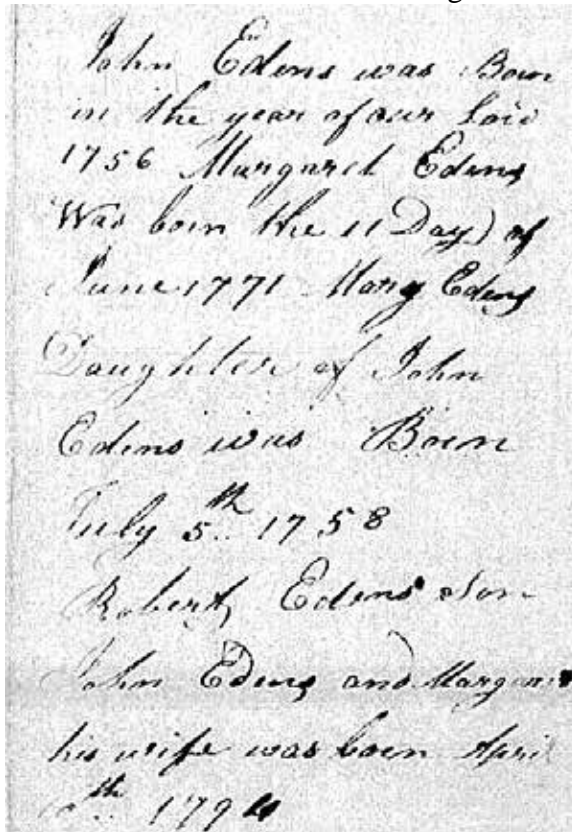 John Edens was Born
in the year of our Lord
1756 Margaret Edens
Was born the 11 Day of
June 1771 Mary Edens
Daughter of John
Edens was Born
July 5th 1758
Robert Edens Son
John Edens and Margaret
his wife was born April
th 1794